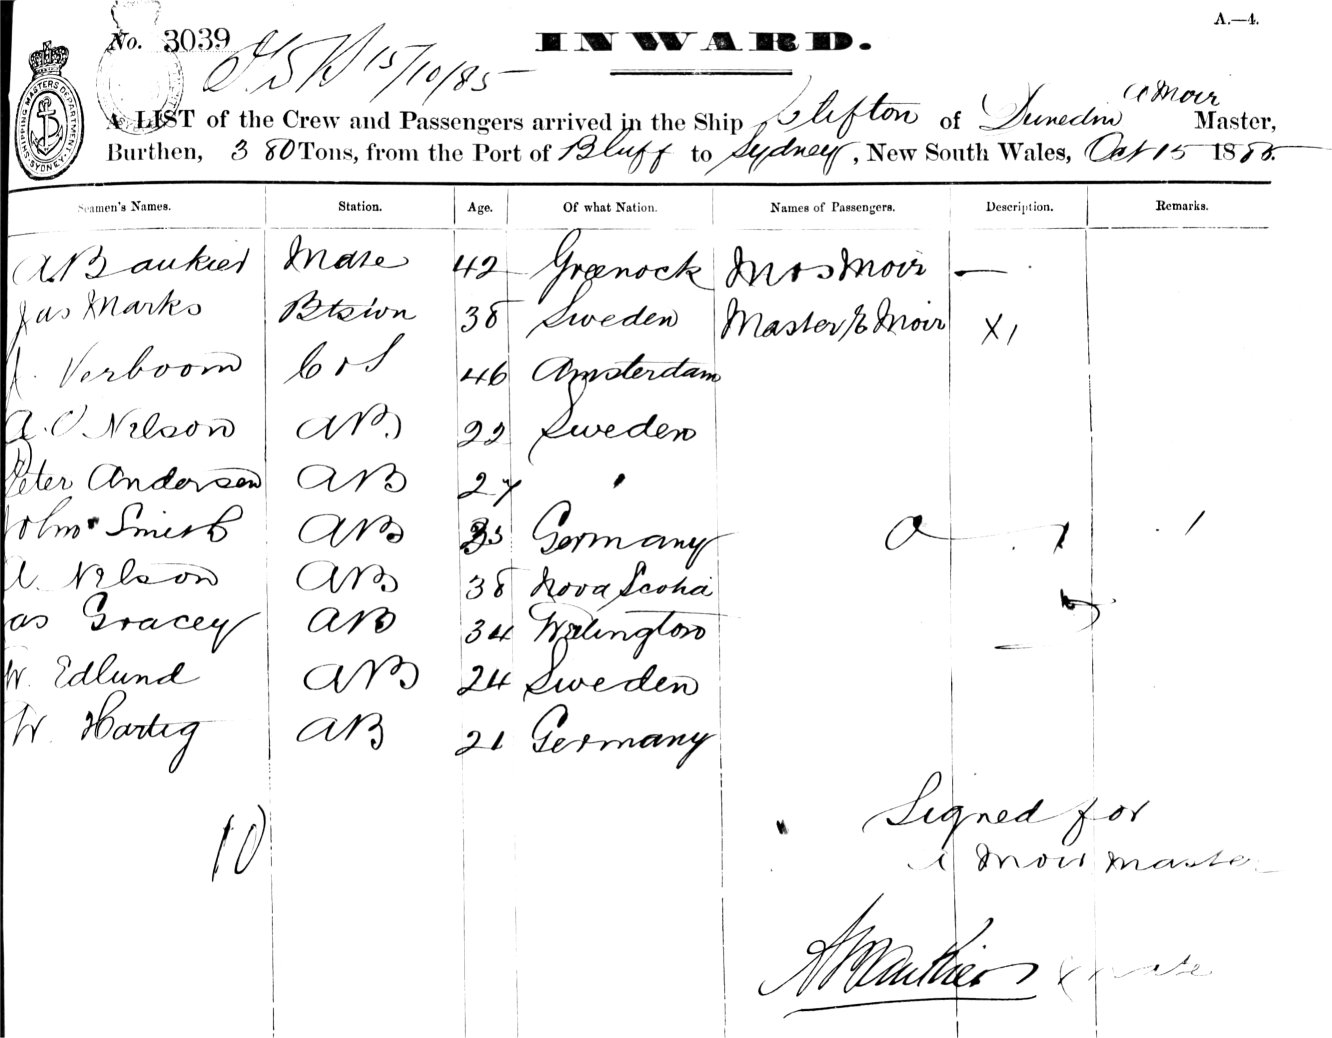 A.—4.
No. 3039
INWARD.
15/10/85
A LIST of the Crew and Passengers arrived in the Ship Clifton of Dunedin A Moir Master,
Burthen, 380 Tons, from the Port of Bluff to Sydney, New South Wales, Oct 15 1885.
SHIPPING MASTERS DEPARTMENT SYDNEY
Seamen's Names. Station. Age. Of what Nation. Names of Passengers. Description. Remarks.
Mate 42 Greenock Mrs Moir —
Jas Marks 38 Sweden Master E Moir
J. Verboom 46 Amsterdam
A. Nelson AB 22 Sweden
Peter Andersen AB 27 "
John Smith AB Germany
A. Nelson AB 38 Nova Scotia
as Gracey AB 34
W. Edlund AB 24 Sweden
W. Hartig AB 21 Germany
10
Signed for
A Moir Master
Mate